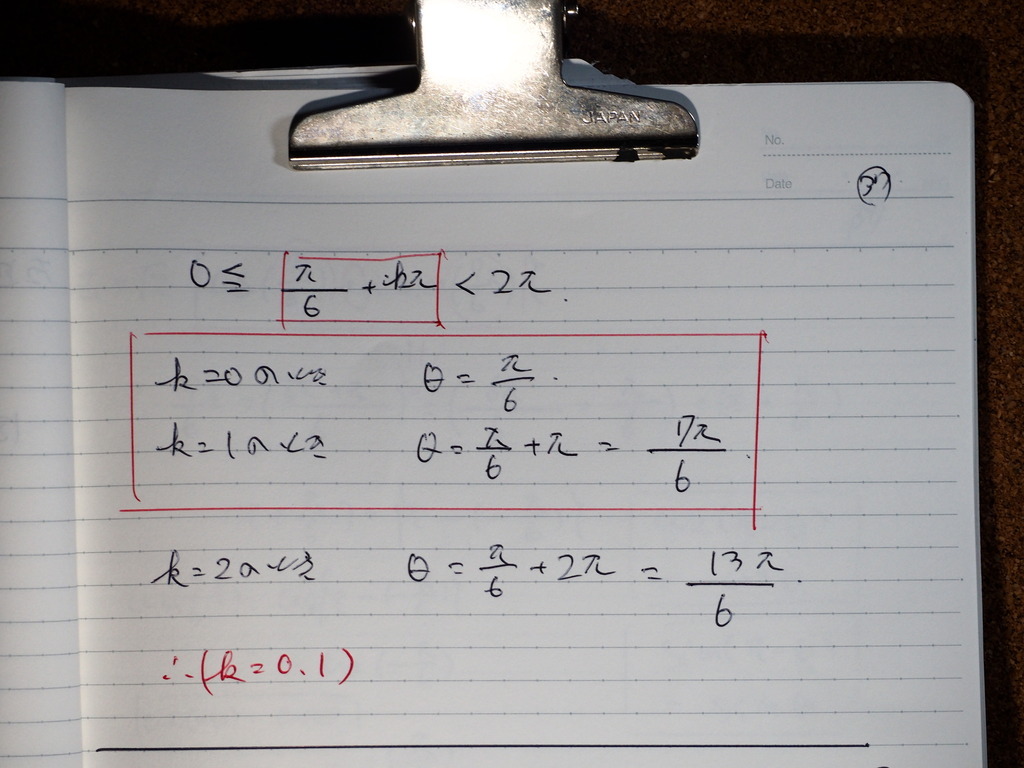 JAPAN
No.
Date
0 ≦ π/6 + kπ < 2π.
k=0のとき θ = π/6.
k=1のとき θ = π/6 + π = 7π/6.
k=2のとき θ = π/6 + 2π = 13π/6.
∴(k=0.1)